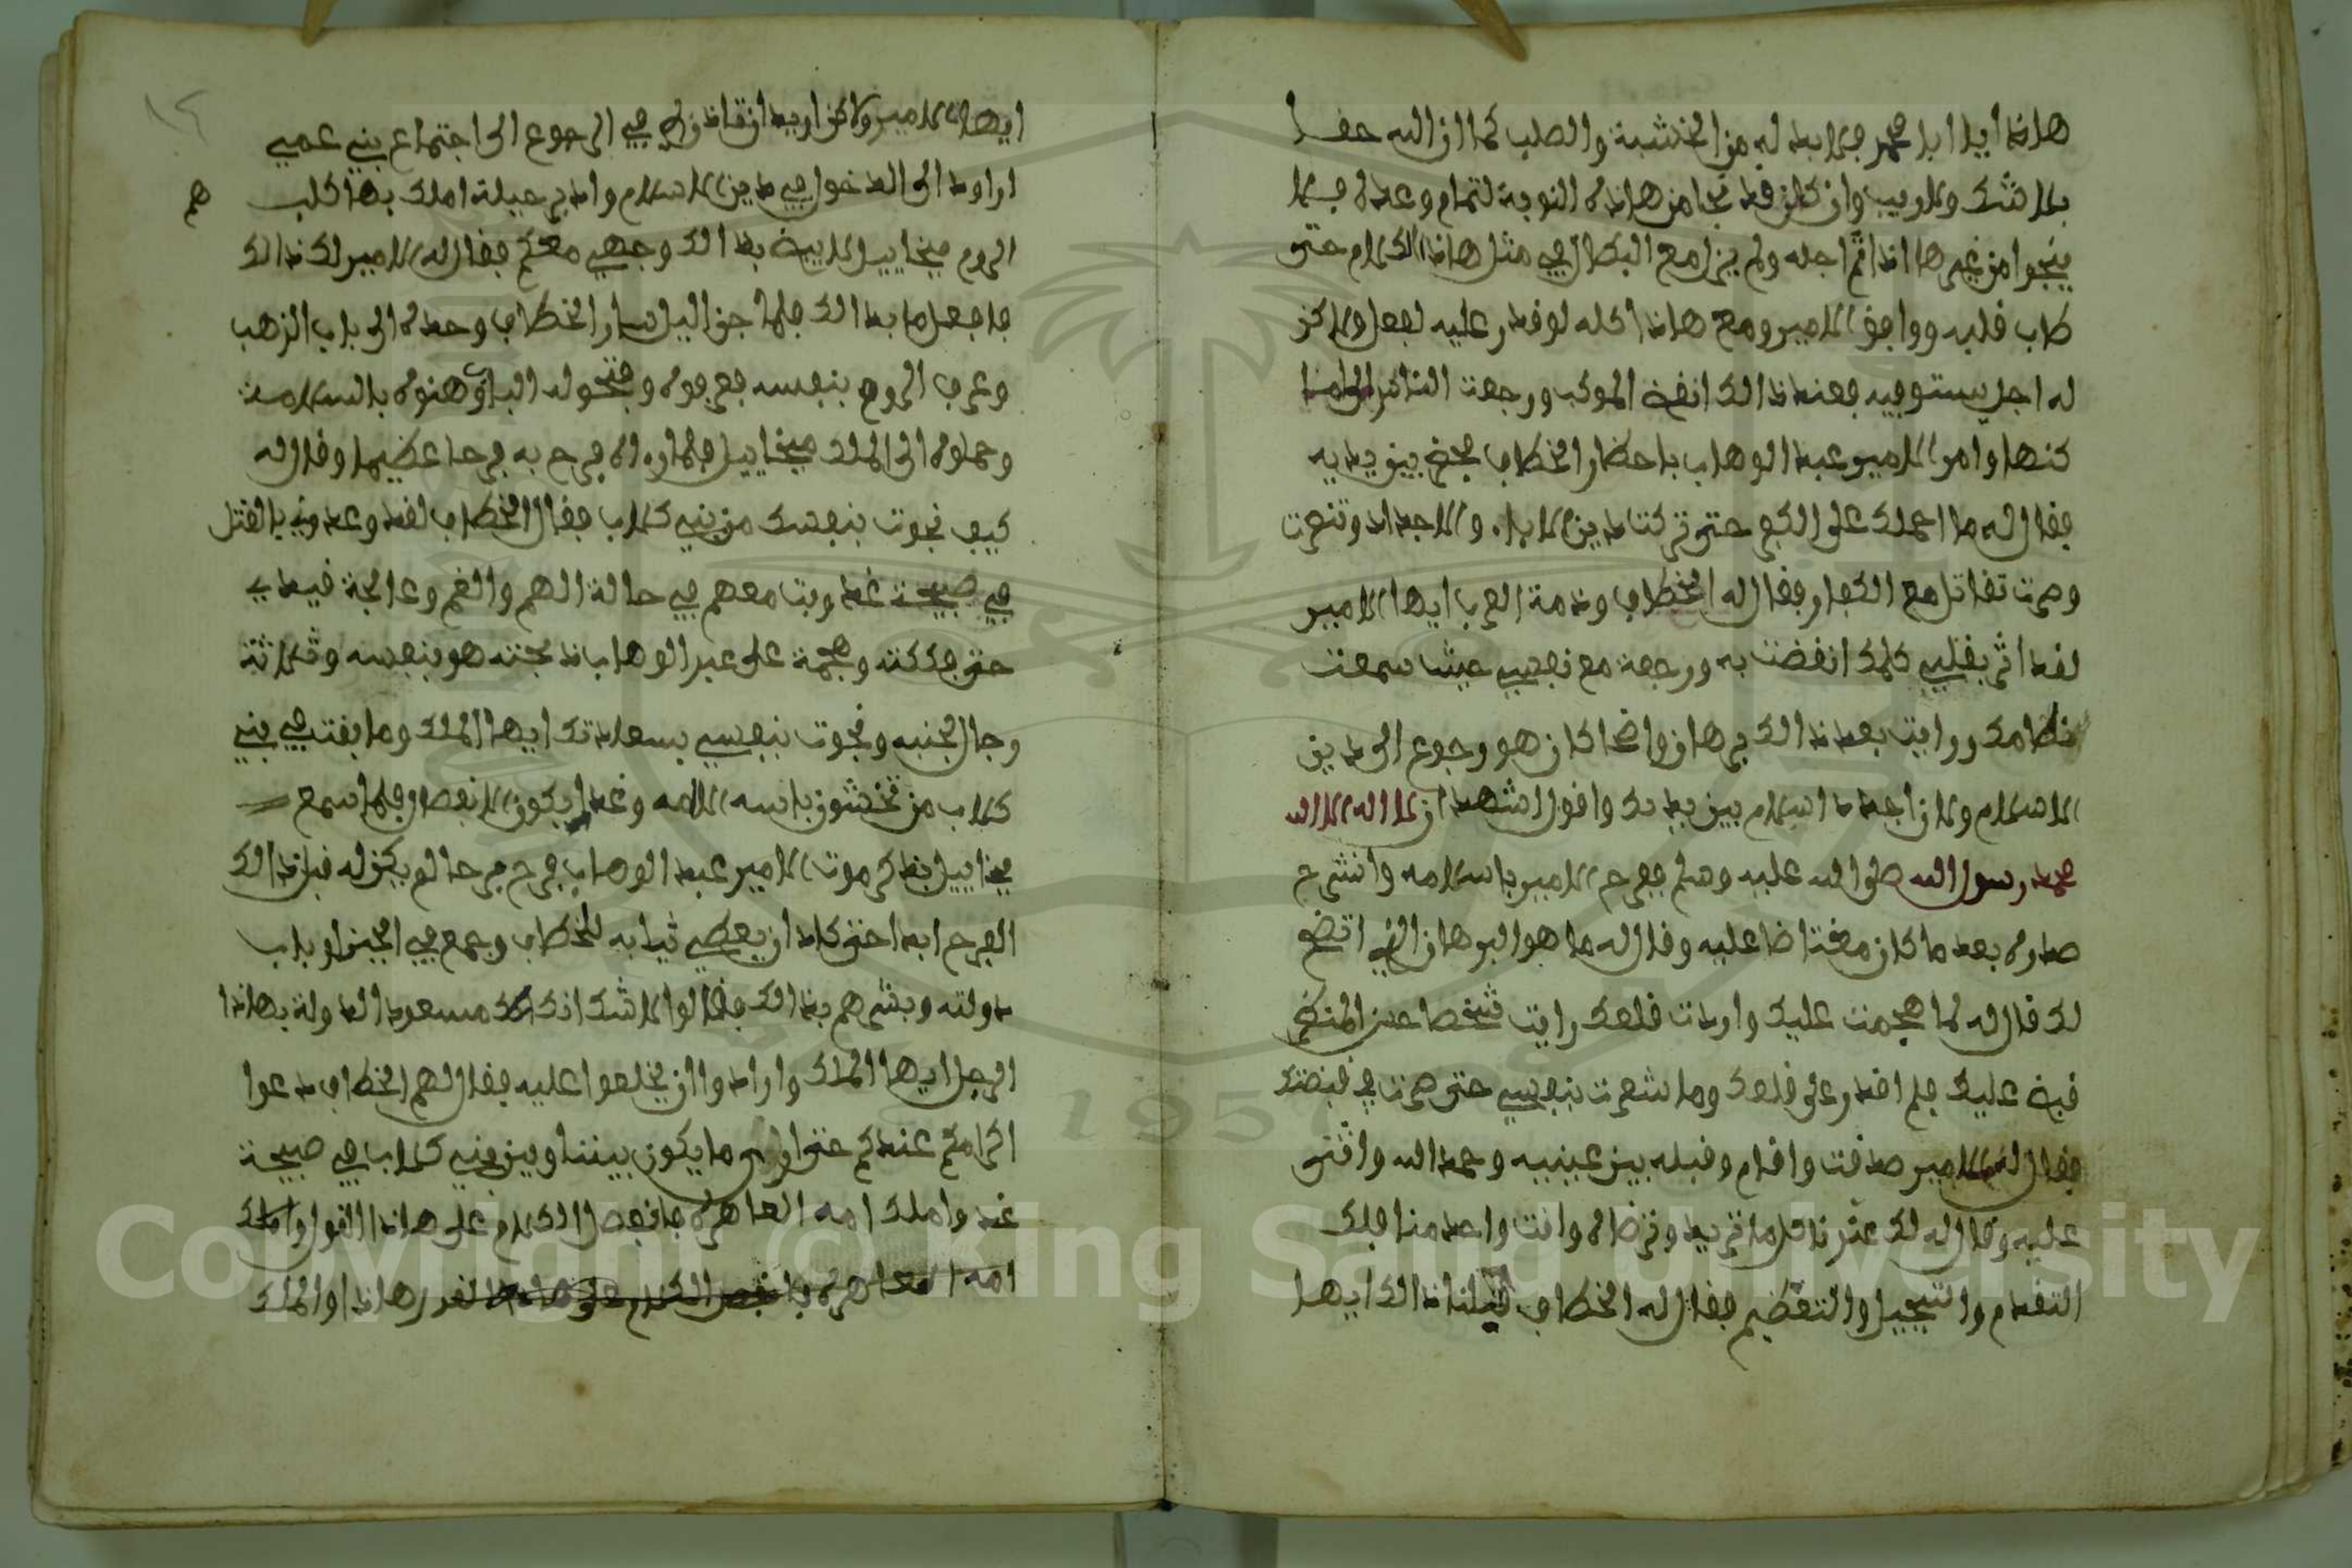 هاذا ايا ابا محمد فلا بد له من الخشبة والصلب كما ان الله حفا
بلا شك ولا ريب وان كان قد نجا من هاذه النوبة لتمام وعده فلا
ينجوا من غيرها اذا تم اجله ولم يزل مع البطال في مثل هاذا الكلام حتى
طاب قلبه ووافق الامير ومع هاذا كله لو قدر عليه لفعل ولاكن
له اجل يستوفيه فعند ذالك انفض الموكب ورجعت الناس الى اما
كنها وامر الامير عبد الوهاب باحضار الخطاب فحضر بين يديه
فقال له ما احملك على الكفر حتى تركت دين الاباء والاجداد وتنصرت
وصرت تقاتل مع الكفار فقال له الخطاب وذمة العرب ايها الامير
لقد اثر بقلبي كلامك انفضت به ورجعة مع نفسي حيث سمعت
نظامك ورايت بعد ذالك برهان واضحا كان هو رجوع الى دين
الاسلام والان اجدد اسلام بين يديك واقول اشهد ان لا اله الا الله
محمد رسول الله صلى الله عليه وسلم ففرح الامير باسلامه وانشرح
صدره بعد ما كان مغتاضا عليه وقال له ما هو البرهان الذي اتضح
لك قال له لما هجمت عليك واردت قلعك رايت شخصا عن المنكم
قبض عليك فلم اقدر على قلعك وما شعرت بنفسي حتى صرت في قبضتك
فقال له الامير صدقت واقدم وقبله بين عينيه وحمد الله واثنى
عليه وقال له لك عندنا كل ما تريد وترضاه وانت واحد منا فلك
التقدم والتبجيل والتعظيم فقال له الخطاب قبلنا ذالك ايها
ايها الامير ولاكن اريد ان تقاذن لي في الرجوع الى اجتماع بني عمي
اراود الى الدخول في دين الاسلام وادبر حيلة املك بها كلب
هم
الروم ميخاييل لابيض بذالك وجهي معكم فقال له الامير لك ذالك
فافعل ما بدا لك فلما جن اليل سار الخطاب وحده الى باب الذهب
وعرف الروم بنفسه فعرفوه وفتحو له الباب وهنوه بالسلامة
وحملوه الى الملك ميخاييل فلما راه فرح به فرحا عظيما وقال له
كيف نجوت بنفسك من بني كلاب فقال الخطاب لقد وعدوني بالقتل
في صبيحة غد وبت معهم في حالة الهم والغم وعالجة قيدي
حتى فككته وهجمة على عبد الوهاب ذبحته هو بنفسه وثلاثة
رجال بجنبه ونجوت بنفسي بسعادتك ايها الملك وما بقت في بني
كلاب من تخشون باسه الامه وغدا يكون الانفصال فلما سمع
ميخاييل بذكر موت الامير عبد الوهاب فرح فرحا لم يكن له قبل ذالك
الفرح ابدا حتى كاد ان يعطي ثيابه للخطاب وجمع في الحين ارباب
دولته وبشرهم بذالك فقالوا لاشك انك ملك مسعود الدولة بهاذا
الرجل ايها الملك وارادوا ان يخلعوا عليه فقال لهم الخطاب دعوا
اكرامكم عندكم حتى ارى ما يكون بيننا وبين بني كلاب في صبيحة
غد واملك امه العاهرة فانفصل الكلام على هاذا القول واملك
امه العاهرة فانفصل الكلام على هاذا القدر هاذا والملك